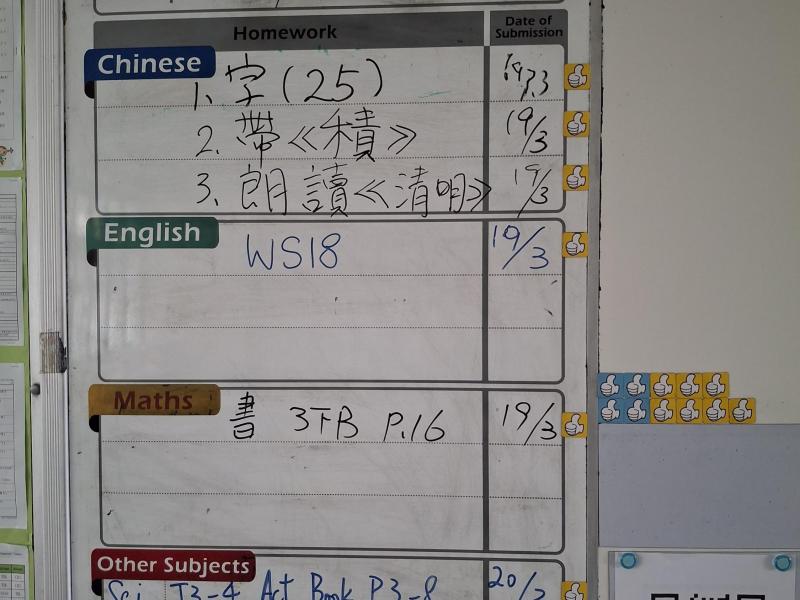 Homework
Date of Submission
Chinese
1. 字(25) 19/3
2. 帶《積》 19/3
3. 朗讀《清明》 19/3
English
WS18 19/3
Maths
書 3下B P.16 19/3
Other Subjects
Sci T3-4 Act Book P3-8 20/3